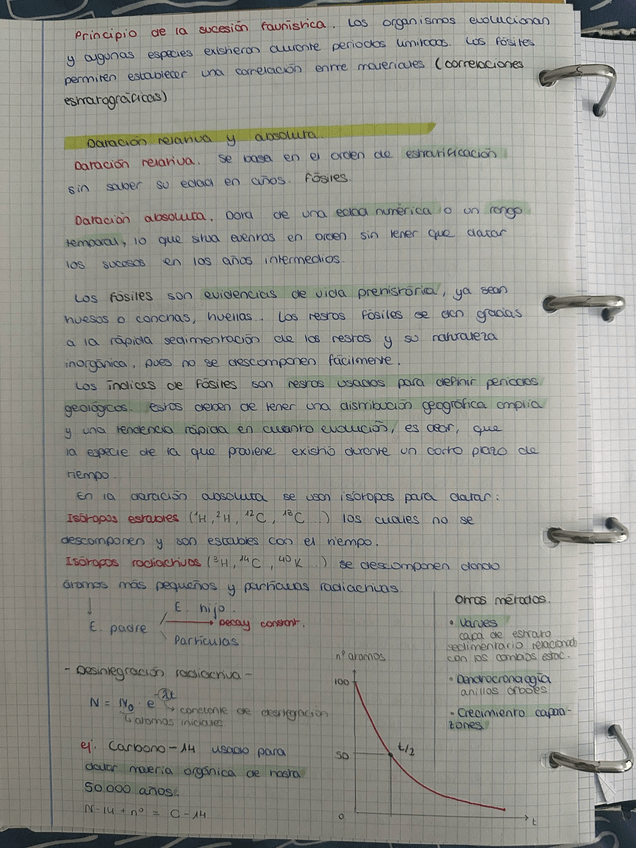 Principio de la sucesión faunística. Los organismos evolucionan
y algunas especies existieron durante periodos limitados. Los fósiles
permiten establecer una correlación entre materiales (correlaciones
estratográficas)
Datación relativa y absoluta.
Datación relativa. Se basa en el orden de estratificación
sin saber su edad en años. Fósiles.
Datación absoluta. Dota de una edad numérica o un rango
temporal, lo que situa eventos en orden sin tener que datar
los sucesos en los años intermedios.
Los fósiles son evidencias de vida prehistórica, ya sean
huesos o conchas, huellas.. Los restos fósiles se dan gracias
a la rápida sedimentación de los restos y su naturaleza
inorgánica, pues no se descomponen fácilmente.
Los índices de fósiles son restos usados para definir periodos
geológicos. Estos deben de tener una distribución geográfica amplia
y una tendencia rápida en cuanto evolución, es decir, que
la especie de la que proviene existió durante un corto plazo de
tiempo.
En la datación absoluta se usan isótopos para datar:
Isótopos estables (¹H, ²H, ¹²C, ¹³C ...) los cuales no se
descomponen y son estables con el tiempo.
Isótopos radiactivos (³H, ¹⁴C, ⁴⁰K ...) se descomponen dando
átomos más pequeños y partículas radiactivas.
E. padre
E. hijo.
decay constant.
Partículas
- Desintegración radiactiva -
N = N₀ · e^-λt
constante de
átomos iniciales
ej. Carbono-14 usado para
datar materia orgánica de hasta
50.000 años.
N-14 + n⁰ = C-14
nº átomos
100
50
0
t/2
t
Otros métodos.
• Varves
capa de estrato
sedimentario relacionad
con los cambios estac.
• Dendrocronología
anillos árboles
• Crecimiento capara-
zones